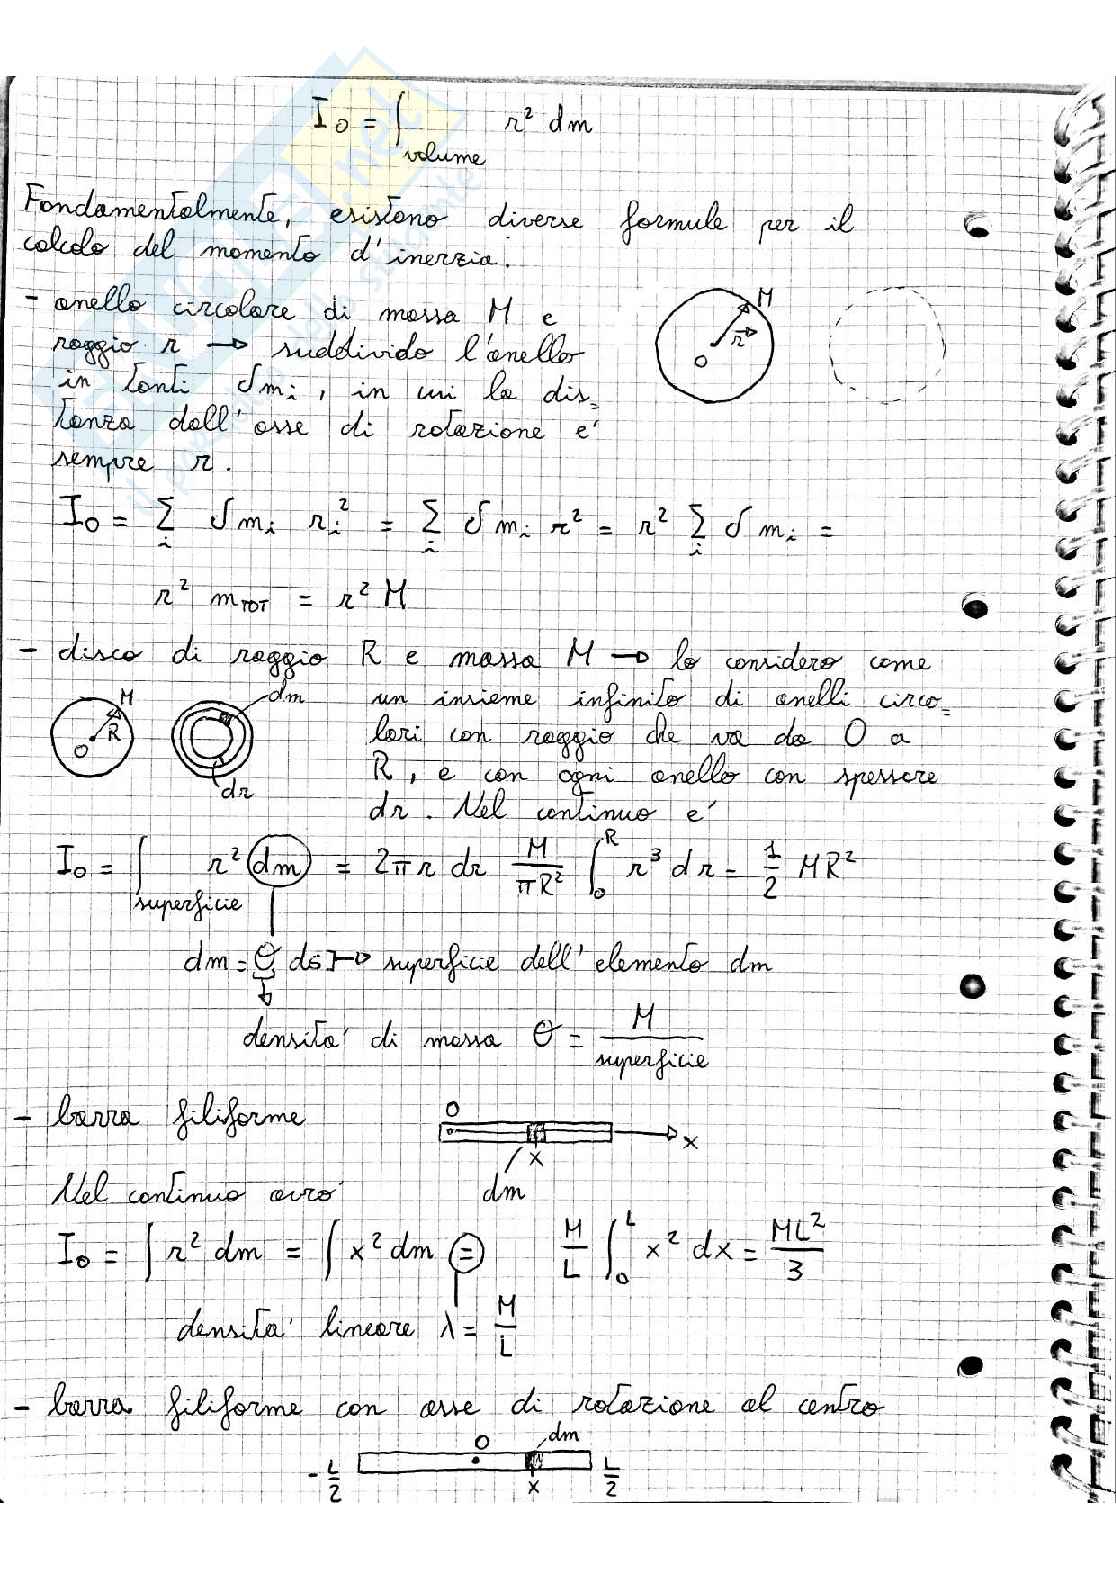 I₀ = ∫ volume r² dm
Fondamentalmente, esistono diverse formule per il
calcolo del momento d'inerzia.
- anello circolare di massa M e
raggio r → suddivido l'anello
in tanti δmᵢ, in cui la dis=
tanza dall'asse di rotazione e'
sempre r.
M
r
O
I₀ = Σᵢ δmᵢ rᵢ² = Σᵢ δmᵢ r² = r² Σᵢ δmᵢ =
r² m_TOT = r² M
- disco di raggio R e massa M → lo considero come
un insieme infinito di anelli circo=
lari con raggio che va da 0 a
R, e con ogni anello con spessore
dr. Nel continuo e'
M
R
O
dm
dr
I₀ = ∫ superficie r² dm = 2πr dr M/πR² ∫₀ᴿ r³ dr = 1/2 MR²
dm = σ ds → superficie dell'elemento dm
densita' di massa σ = M/superficie
- barra filiforme
O
x
x
dm
Nel continuo avro'
I₀ = ∫ r² dm = ∫ x² dm = M/L ∫₀ᴸ x² dx = ML²/3
densita' lineare λ = M/L
- barra filiforme con asse di rotazione al centro
O dm
-L/2 x L/2